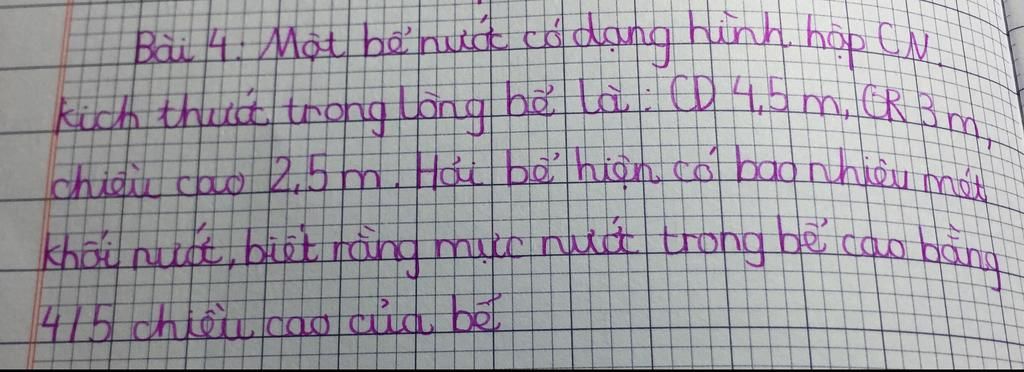 Bài 4: Một bể nước có dạng hình hộp CN.
kích thước trong lòng bể là: CD 4,5 m, CR 3m,
chiều cao 2,5 m. Hỏi bể hiện có bao nhiêu mét
khối nước, biết rằng mực nước trong bể cao bằng
4/5 chiều cao của bể